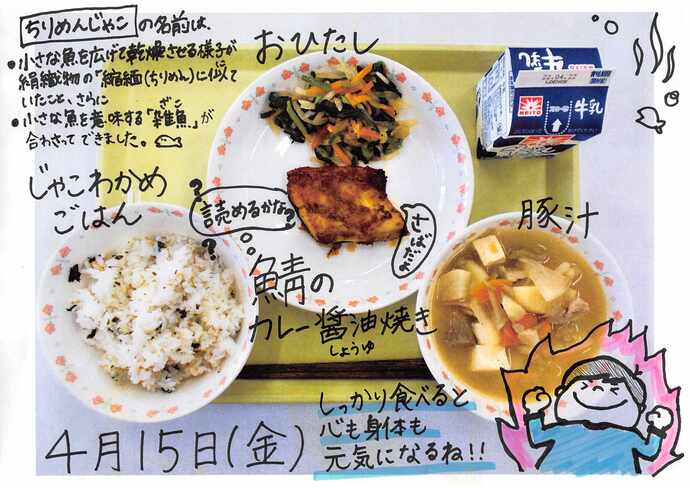 ちりめんじゃこ の名前は、
・小さな魚を広げて乾燥させる様子が
絹織物の「縮緬(ちりめん)に似て
いたこと、さらに
・小さな魚を意味する「雑魚」が
ざこ
合わさってできました。
おひたし
22.04.22
牛乳
MEITO
じゃこわかめ
ごはん
?
読めるかな?
?
さばだよ
豚汁
鯖の
カレー醤油焼き
しょうゆ
4月15日(金)
しっかり食べると
心も身体も
元気になるね!!